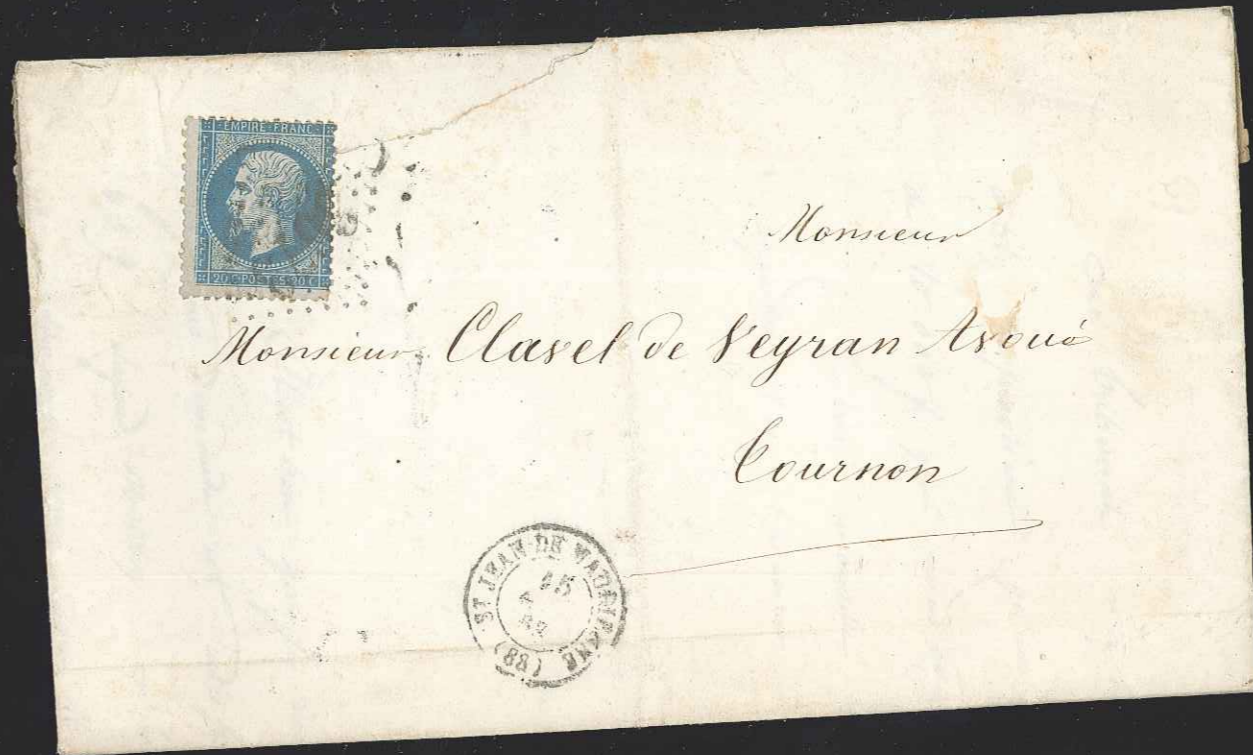 EMPIRE FRANC
20 C POSTES 20 C
Monsieur
Monsieur Clavel de Veyran Avoué
Tournon
ST JEAN DE (88)
15